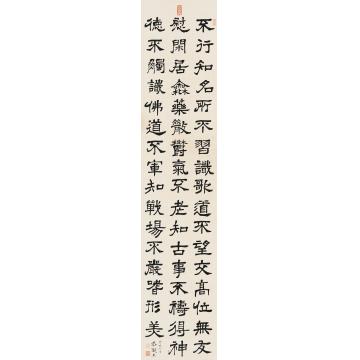 不行知名所不習識歌道不望交高位無友
慰閑居鱻藥散鬱氣不老知古事不禱得神
德不觸識佛道不軍知戰場不嚴睹形美